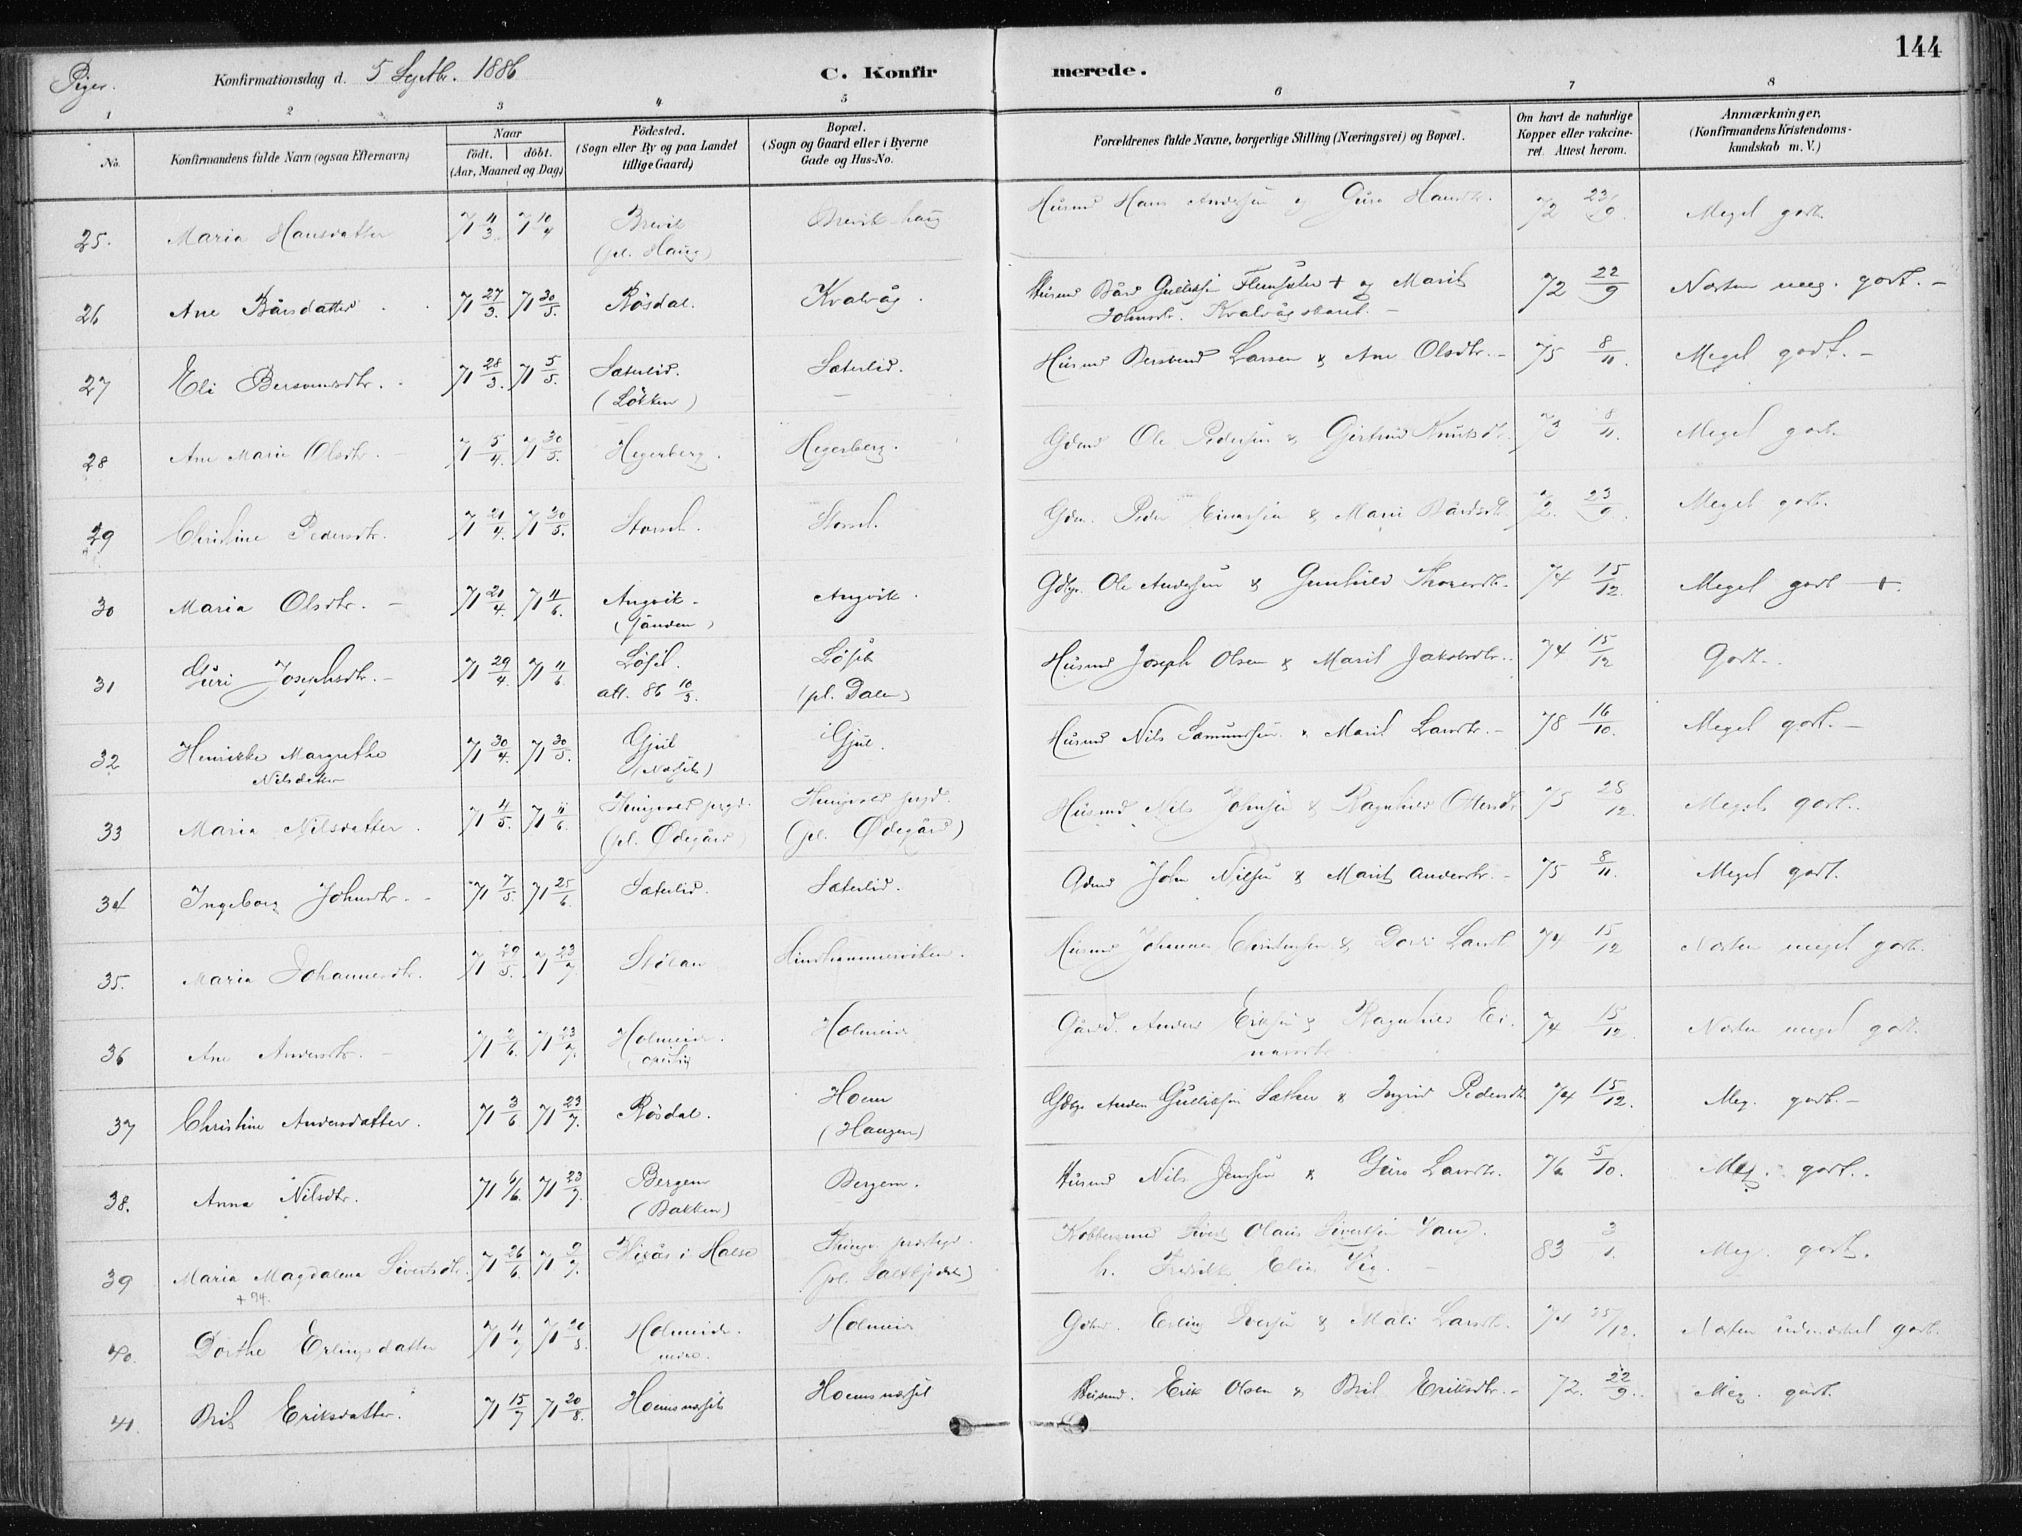 144
Piger. Konfirmationsdag d. 5 Septbr. 1886 C. Konfirmerede.
1 2 3 4 5 6 7 8
No. Konfirmandens fulde Navn (ogsaa Efternavn) Naar födt. döbt. (Aar, Maaned og Dag) Födested. (Sogn eller By og paa Landet tillige Gaard) Bopæl. (Sogn og Gaard eller i Byerne Gade og Hus-No. Forældrenes fulde Navne, borgerlige Stilling (Næringsvei) og Bopæl. Om havt de naturlige Kopper eller vakcineret. Attest herom. Anmærkninger. (Konfirmandens Kristendomskundskab m. V.)
25. Maria Hansdatter 71 11/3 71 10/4 Brevik Brevik-haug Husmd Hans Andersen og Guro Hansdtr. 72 23/9. Meget godt.
(pl. Haug)
26 Ane Bårsdatter 71 27/3. 71 30/5. Rösdal. Kvalvåg. Husmd Bård Gulliksen + og Marit 72 22/9 Næsten meg. godt. -
Johnsdtr.
27 Eli Bersvensdtr. 71 28/3. 71 5/5. Sæterlid. Sæterlid. Husmd Larsen & Ane Olsdtr. - 75 8/11. Meget godt. -
(Løkken)
28 Ane Marie Olsdtr. 71 5/4. 71 30/5. Hegerberg. Hegerberg. Gdmd Ole Pedersen & Gjertrud Knutsdtr. 73 8/11. Meget godt.
29 Christine Pedersdtr. 71 21/4. 71 30/5. Storsel. Storsel. Gdm. Peder Einarsen & Marie Bårdsdtr. 72. 23/9. Meget godt.
30 Maria Olsdtr. - 71 21/4. 71 11/6. Angvik. Angvik. Gdbr. Ole Andersen & Gunhild Thoresdtr. 74 15/12. Meget godt +.
31 Guri Josephsdtr. - 71 29/4. 71 11/6. Löfset. Löfset Husmd Joseph Olsen & Marit Jakobsdtr. 74 15/12 Godt.
att. 86 10/3. (pl. Dalen)
32 Henrikke Margrethe 71 30/4. 71 30/5. Gjül Gjül. Husmd Nils & Marit Larsdtr. - 78 16/10. Meget godt. -
Nilsdatter (Næsset)
33 Maria Nilsdatter. 71 4/5. 71 11/6. Thingvold prgd. Thingvold prgd. Husmd Nils Johnsen & Ragnhild Ottersdtr 75 28/12. Meget godt.
(pl. Ødegård) (pl. Ødegård)
34 Ingeborg Johnsdtr. - 71 7/5. 71 25/6. Sæterlid. Sæterlid. Gdmd John Nilsen & Marit Andersdtr. - 75 8/11. Meget godt.
35. Maria Johannesdtr. 71 29/5. 71 23/7 Stølan Husmd Johannes Christensen & Larsdt 74 15/12 Næsten meget godt.
36 Ane Andersdtr. - 71 2/6. 71 23/7. Holmeide. Holmeide Gårdm. Anders Eriksen & Ragnhild Ei- 74 15/12. Næsten meget godt.
narsdtr
37 Christine Andersdatter. 71 3/6 71 23/7. Rösdal. Hoem Gdbr Anders Gulliksen & Ingrid Pedersdtr 74 15/12. Meg. godt. -
(Haugen)
38. Anna Nilsdtr. 71 6/6. 71 23/7. Bergem Bergem. Husmd Nils Jensen & Guro Larsdtr. 76 5/10. Meg. godt.
(Bakken)
39 Maria Magdalena Sivertsdtr. 71 26/6. 71 9/7. i Halse Thingv. prestegd. Sivert Olaus Sivertsen Vaag. 83 3/1. Meg. godt.
+ 94. h. Elias Vig. -
40. Dorthe Erlingsdatter 71 4/7 71 20/8. Holmeide. Holmeide Gdbr. Erling Iversen & Mali Larsdtr. 74 25/12. Næsten udmærket godt.
nedre.
41 Brit Eriksdatter. 71 15/7 71 20/8. Hoemsnæset Hoemsnæset Husmd. Erik Olsen & Brit Eriksdtr. - 72. 22/9. Meg. godt.